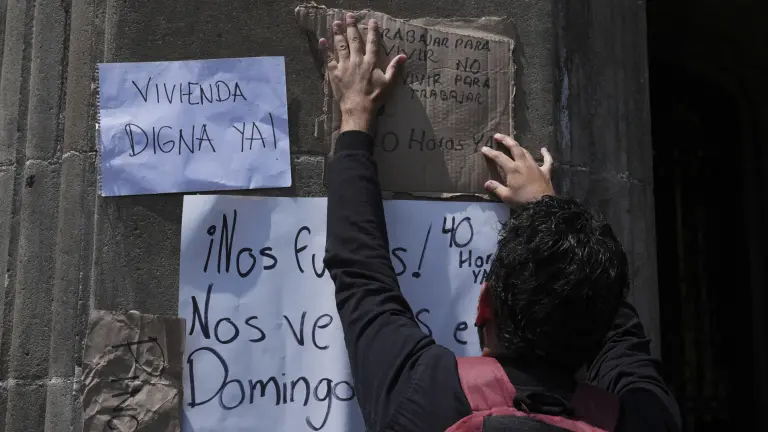 VIVIENDA
DIGNA YA!
TRABAJAR PARA
VIVIR NO
VIVIR PARA
TRABAJAR
40 Horas YA
¡Nos fu s!
40
Hor
YA
Nos ve s e
Domingo